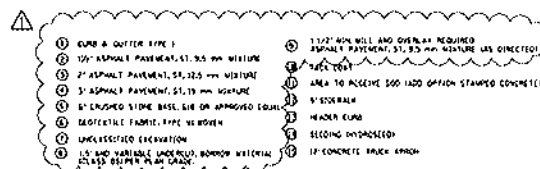 1
① CURB & GUTTER TYPE I
② 1½" ASPHALT PAVEMENT, ST, 9.5 mm MIXTURE
③ 2" ASPHALT PAVEMENT, ST, 12.5 mm MIXTURE
④ 3" ASPHALT PAVEMENT, ST, 19 mm MIXTURE
⑤ 6" CRUSHED STONE BASE, 610 OR APPROVED EQUAL
⑥ GEOTEXTILE FABRIC, TYPE V, WOVEN
⑦ UNCLASSIFIED EXCAVATION
⑧ 1.5' AND VARIABLE UNDERCUT, BORROW MATERIAL
(CLASS B5) PER PLAN GRADE.
⑨ 1 1/2" MIN. MILL AND OVERLAY REQUIRED
ASPHALT PAVEMENT, ST, 9.5 mm MIXTURE (AS DIRECTED)
⑩ TACK COAT
⑪ AREA TO RECEIVE SOD (ADD OPTION STAMPED CONCRETE)
⑫ 5' SIDEWALK
⑬ HEADER CURB
⑭ SEEDING (HYDROSEED)
⑮ 12' CONCRETE TRUCK APRON